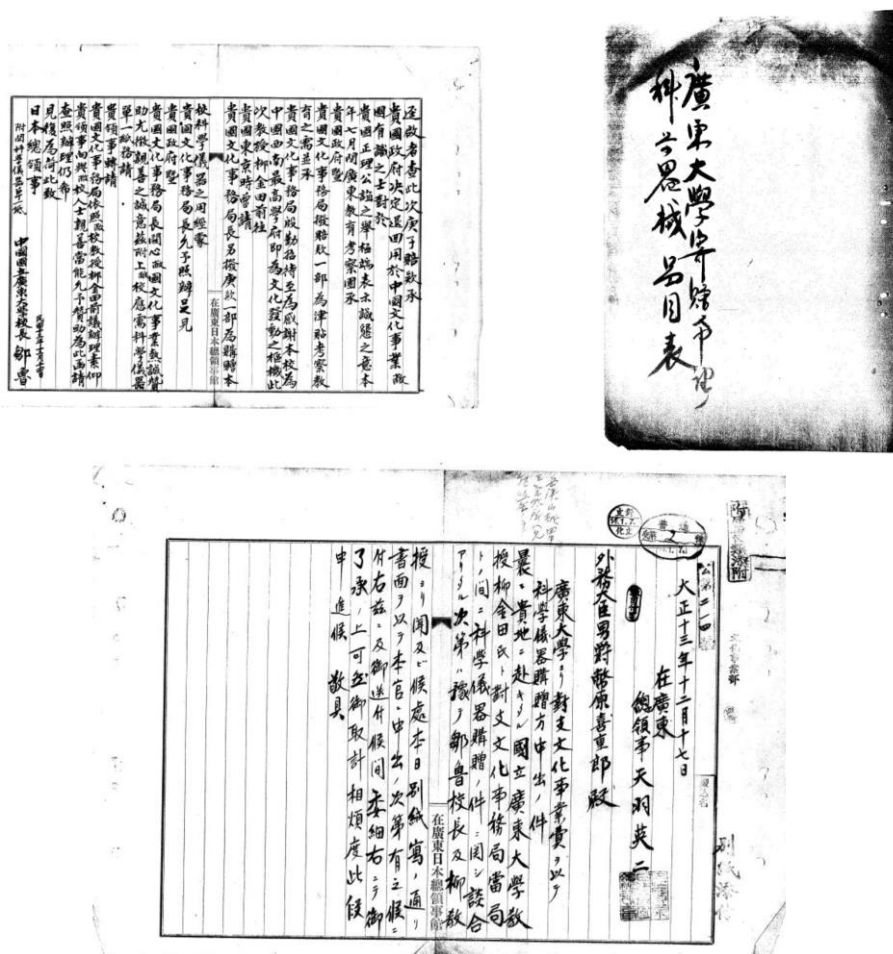 逕啟者查此次庚子賠款承
貴國政府决定退回用於中國文化事業敝
國有識之士對於
貴國正理公誼之舉極端表示誠懇之意本
年七月間廣東教育考察團承
貴國政府暨
貴國文化事務局撥賠款一部為津貼考察教
育之需並承
貴國文化事務局殷勤招待至為感謝本校為
中國西南最高學府即為文化發動之樞機此
次教授柳金田前往
貴國東京時曾請
貴國文化事務局長另撥庚款一部為購贈本
在廣東日本總領事館
校科學儀器之用經蒙
貴國文化事務局長允予照辦足見
貴國政府暨
貴國文化事務局長關心敝國文化事業熱誠贊
助尤徵親善之誠意茲附上敝校應需科學儀器
單一紙務請
貴領事轉請
貴國文化事務局依照敝校教授柳金田前議辦理素仰
貴領事向與敝校人士親善當能允予贊助為此函請
查照辦理仍希
見復為荷此致
日本總領事
附開科學儀器單一紙
中國國立廣東大學校長 鄒魯
廣東大學寄贈希望ノ
科學器械品目表
普通
公第二一四
大正十三年十二月十七日
在廣東
總領事天羽英二
外務大臣男爵幣原喜重郎殿
廣東大學ヨリ對支文化事業費ヲ以テ
科學儀器購贈方申出ノ件
最近貴地ニ赴キタル國立廣東大學教
授柳金田氏ト對支文化事務局當局
トノ間ニ科學儀器購贈ノ件ニ関シ談合
アリタル次第ハ豫テ鄒魯校長及柳教
在廣東日本總領事館
授ヨリ聞及ヒ候處本日別紙寫ノ通リ
書面ヲ以テ本官ニ申出ノ次第有之候ニ
付右茲ニ及御送付候間委細右ニテ御
了承ノ上可然御取計相煩度此段
申進候 敬具
別紙添付